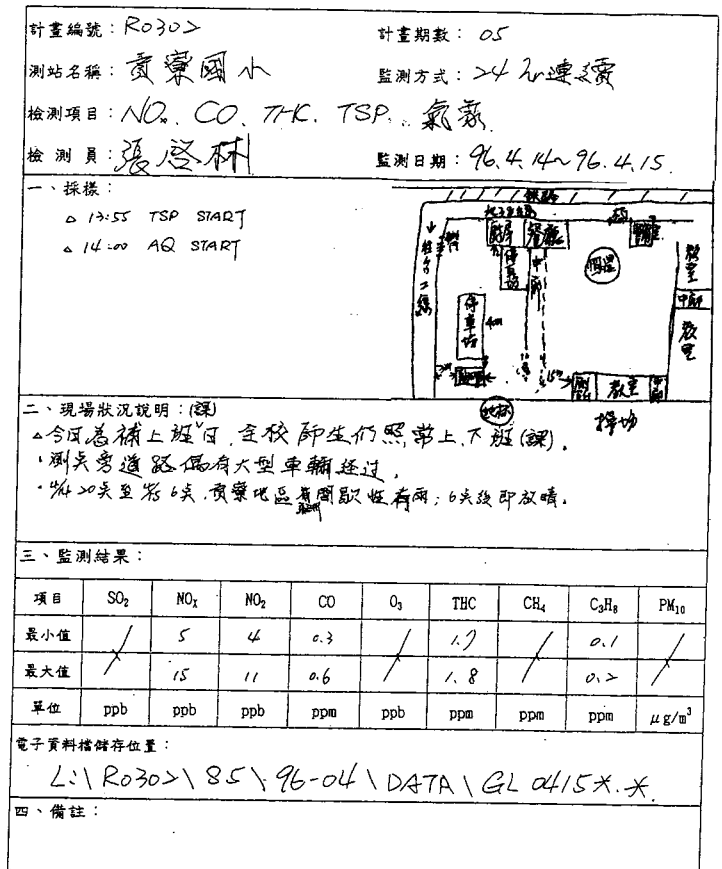 計畫編號：R0302
計畫期數：05
測站名稱：貢寮國小
監測方式：24 hr連續
檢測項目：NOx. CO. THC. TSP. 氣象
檢測員：張啓林
監測日期：96.4.14~96.4.15.
一、採樣：
△ 13:55 TSP START
△ 14:00 AQ START
鐵路
廚房
餐廳
停車場
中廊
教室
中廊
教室
停車場
4m
15m
廁所
教室
操場
二、現場狀況說明：(課)
△今日為補上班日，全校師生們照常上、下班(課)。
·測點旁道路偶有大型車輛經过。
20點至 6點，貢寮地區有間歇性有雨；6點後即放晴。
三、監測結果：
項目 SO₂ NOX NO₂ CO O₃ THC CH₄ C₃H₈ PM₁₀
最小值 / 5 4 0.3 / 1.7 / 0.1 /
最大值 15 11 0.6 1.8 0.2
單位 ppb ppb ppb ppm ppb ppm ppm ppm μg/m³
電子資料檔儲存位置：
L:\R0302\85\96-04\DATA\GL0415*.*
四、備註：